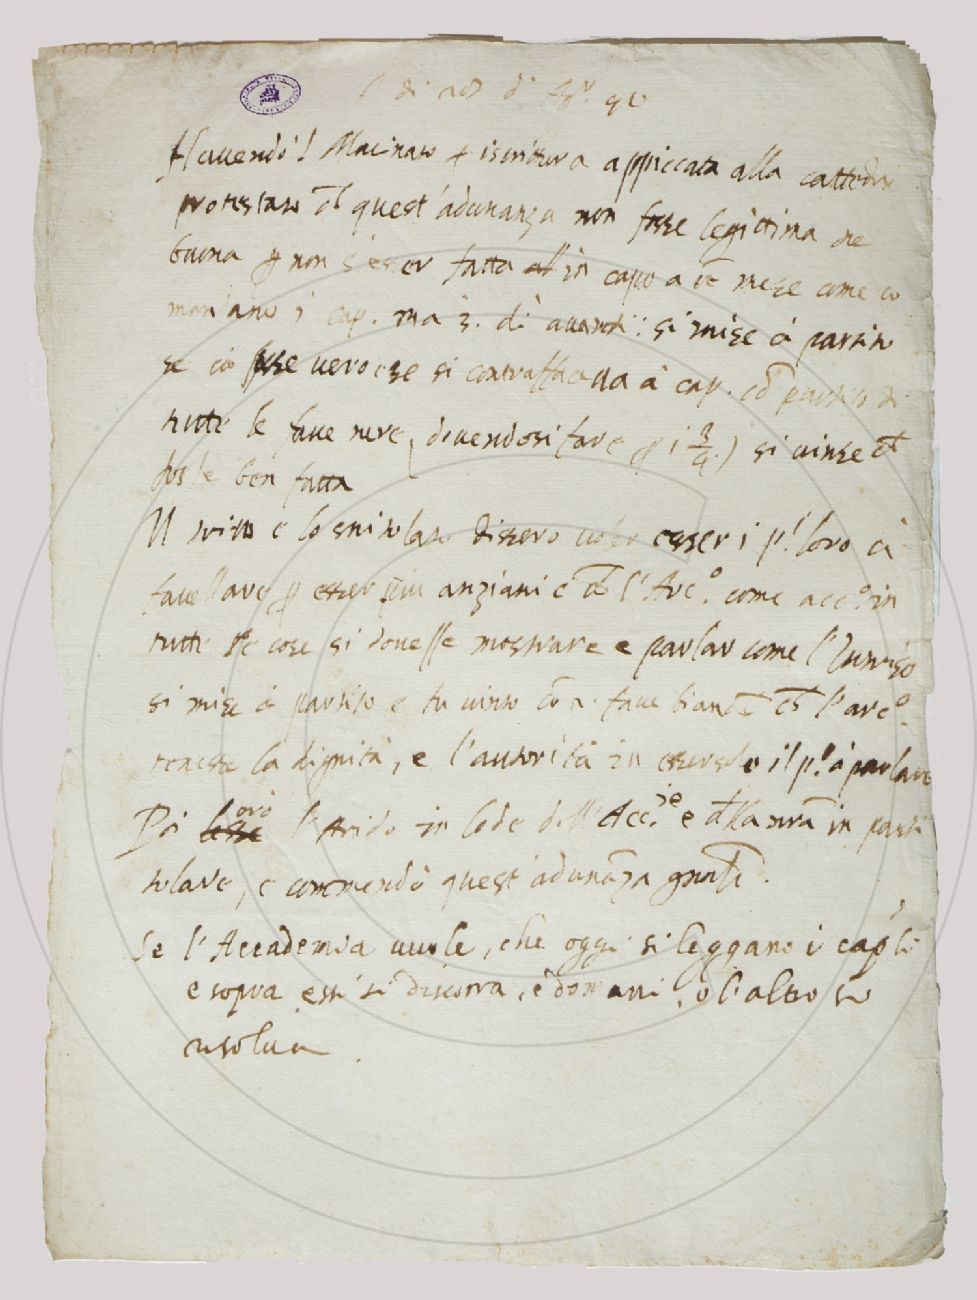 Avendo il Macinato p iscrittura appiccata alla cattedra
protestato ch quest'adunanza non fosse legittima ne
buona p non s'esser fatta in capo a u mese come co
mandano i cap. ma 3. dì avanti: si mise à partito
se ciò fosse vero e se si contraffaceva à cap. cō partito di
tutte le fave nere, (dovendosi fare p i 3/4) si vinse ch
fosse ben fatta
Il trito e lo smisolato dissero voler esser i p.i loro à
favellare p esser più anziani e ch l'Arc.o come acc.o in
tutte le cose si dovesse mostrare e parlar come l'
si mise à partito e fu vinto cō 2. fave bianche ch l'arc.o
tenesse la dignità, e l'autorità in essersi il p.o à parlare
Poi orò l'Arido in lode dell'Acc. e in parti
tolare, e commendò quest'adunāza
Se l'Accademia vuole, che oggi si leggano i cap.li
e sopra essi si discorra, e domani, o l'altro si
risolva.